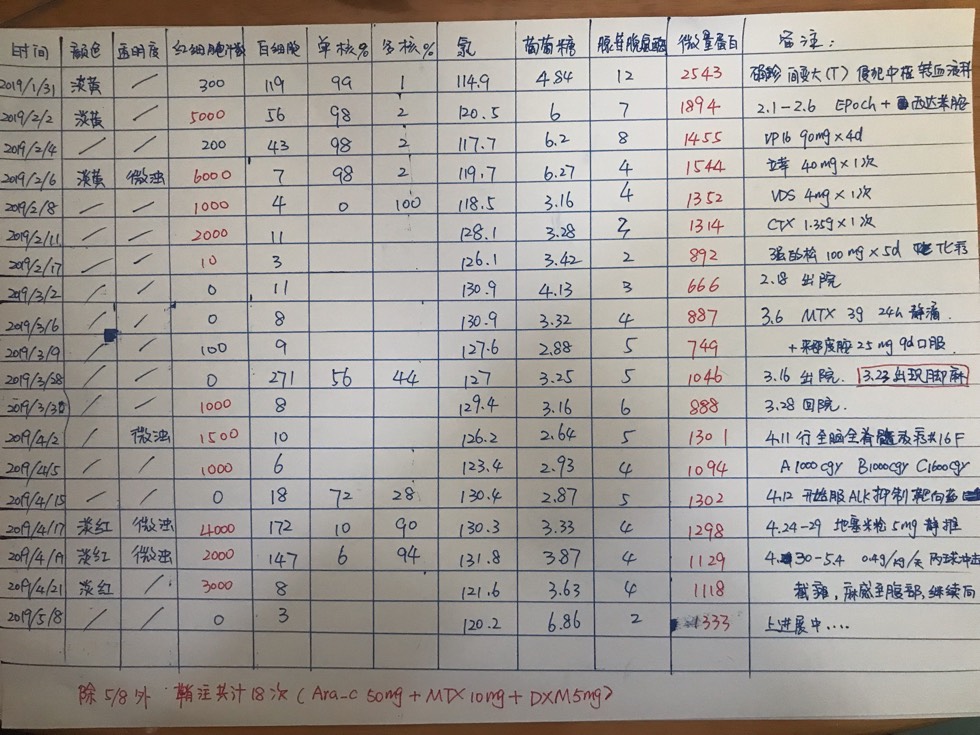 时间 颜色 透明度 红细胞计数 白细胞 单核% 多核% 氯 葡萄糖 腺苷脱氨酶 微量蛋白 备注:
2019/1/31 淡黄 / 300 119 99 1 114.9 4.84 12 2543 间变大(T) 侵犯中枢 转血液科
2019/2/2 淡黄 / 5000 56 98 2 120.5 6 7 1894 2.1-2.6 EPoch + 西达苯胺
2019/2/4 / / 200 43 98 2 117.7 6.2 8 1455 VP16 90mg×4d
2019/2/6 淡黄 微浊 6000 7 98 2 119.7 6.27 4 1544 40mg×1次
2019/2/8 / / 1000 4 0 100 118.5 3.16 4 1352 VDS 4mg×1次
2019/2/11 / / 2000 11 128.1 3.28 2 1314 CTX 1.35g×1次
2019/2/17 / / 10 3 126.1 3.42 2 892 强的松 100mg×5d 化疗
2019/3/2 / / 0 11 130.9 4.13 3 666 2.18 出院
2019/3/6 / / 0 8 130.9 3.32 4 887 3.6 MTX 3g 24h 静滴
2019/3/9 / / 100 9 127.6 2.88 5 749 +来那度胺 25mg 9d口服
2019/3/28 / / 0 271 56 44 127 3.25 5 1046 3.16 出院. 3.23出现脚麻
2019/3/30 / / 1000 8 129.4 3.16 6 888 3.28 回院.
2019/4/2 / 微浊 1500 10 126.2 2.64 5 1301 4.11 行全脑全脊髓放疗共16F
2019/4/5 / / 1000 6 123.4 2.93 4 1094 A1000cgy B1000cgy C1600cgy
2019/4/15 / / 0 18 72 28 130.4 2.87 5 1302 4.12 开始服ALK抑制靶向药
2019/4/17 淡红 微浊 4000 172 10 90 130.3 3.33 4 1298 4.24-29 地塞米松5mg 静推
2019/4/19 淡红 微浊 2000 147 6 94 131.8 3.87 4 1129 4.30-5.4 0.4g/kg/天 丙球冲击
2019/4/21 淡红 / 3000 8 121.6 3.63 4 1118 截瘫,麻感至腹部,继续向
2019/5/8 / / 0 3 120.2 6.86 2 1333 上进展中....
除5/8外 鞘注共计18次(Ara-c 50mg + MTX 10mg + DXM5mg)